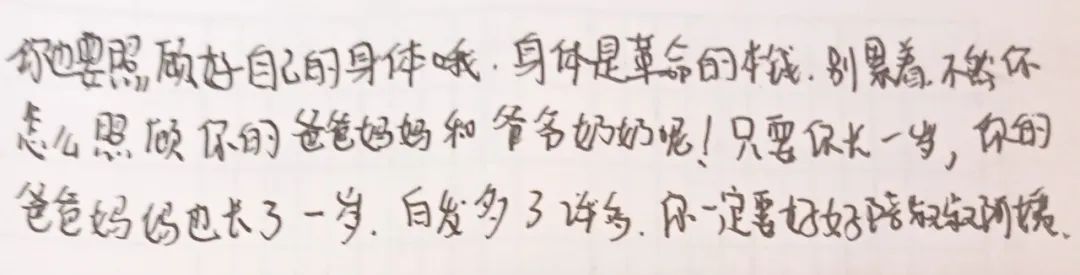 你也要照顾好自己的身体哦.身体是革命的本钱.别累着.不然你
怎么照顾你的爸爸妈妈和爷爷奶奶呢!只要你长一岁,你的
爸爸妈妈也长了一岁.白发多了许多.你一定要好好陪叔叔阿姨.